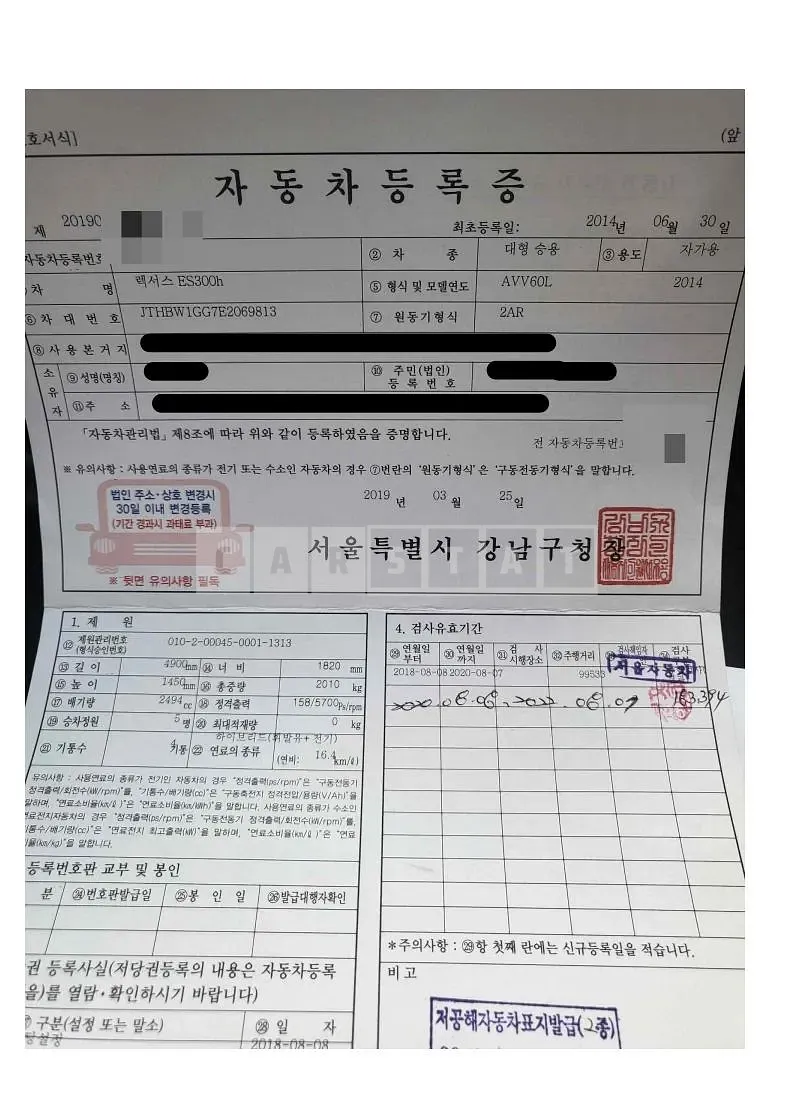 호서식]
(앞
자동차등록증
제 20190
최초등록일: 2014년 06월 30일
자동차등록번호
② 차 종 대형 승용 ③ 용도 자가용
차 명 렉서스 ES300h ⑤ 형식 및 모델연도 AVV60L 2014
⑥ 차 대 번 호 JTHBW1GG7E2069813 ⑦ 원동기형식 2AR
⑧ 사 용 본 거 지
소유자 ⑨ 성명(명칭) ⑩ 주민(법인)등록번호
⑪ 주 소
「자동차관리법」 제8조에 따라 위와 같이 등록하였음을 증명합니다.
전 자동차등록번호
※ 유의사항 : 사용연료의 종류가 전기 또는 수소인 자동차의 경우 ⑦번란의 '원동기형식'은 '구동전동기형식'을 말합니다.
2019 년 03 월 25일
법인 주소·상호 변경시
30일 이내 변경등록
(기간 경과시 과태료 부과)
※ 뒷면 유의사항 필독
서울특별시 강남구청장
CARSTAT
1. 제 원
⑫ 제원관리번호 (형식승인번호) 010-2-00045-0001-1313
⑬ 길 이 4900mm ⑭ 너 비 1820 mm
⑮ 높 이 1450mm ⑯ 총중량 2010 kg
⑰ 배기량 2494cc ⑱ 정격출력 158/5700Ps/rpm
⑲ 승차정원 5명 ⑳ 최대적재량 0 kg
㉑ 기통수 4기통 ㉒ 연료의 종류 하이브리드(휘발유+전기) (연비: 16.4km/ℓ)
유의사항 : 사용연료의 종류가 전기인 자동차의 경우 "정격출력(ps/rpm)"은 "구동전동기
정격출력/회전수(kW/rpm)"를, "기통수/배기량(cc)"은 "구동축전지 정격전압/용량(V/Ah)"을
말하며, "연료소비율(km/ℓ)"은 "연료소비율(km/kWh)"을 말합니다. 사용연료의 종류가 수소인
연료전지자동차의 경우 "정격출력(ps/rpm)"은 "구동전동기 정격출력/회전수(kW/rpm)"를,
"기통수/배기량(cc)"은 "연료전지 최고출력(kW)"을 말하며, "연료소비율(km/ℓ)"은 "연료
율(km/kg)"을 말합니다.
등록번호판 교부 및 봉인
분 ㉔ 번호판발급일 ㉕ 봉 인 일 ㉖ 발급대행자확인
권 등록사실(저당권등록의 내용은 자동차등록
을)를 열람·확인하시기 바랍니다)
구분(설정 또는 말소) ㉘ 일 자
당설정 2018-08-08
4. 검사유효기간
㉙ 연월일부터 ㉚ 연월일까지 ㉛ 검 사 시행장소 ㉜ 주행거리 검사책임자 검사
2018-08-08 2020-08-07 99533 서울자동차
2020.08.08 2022.08.07 163,394
*주의사항 : ㉙항 첫째 란에는 신규등록일을 적습니다.
비 고
저공해자동차표지발급(2종)